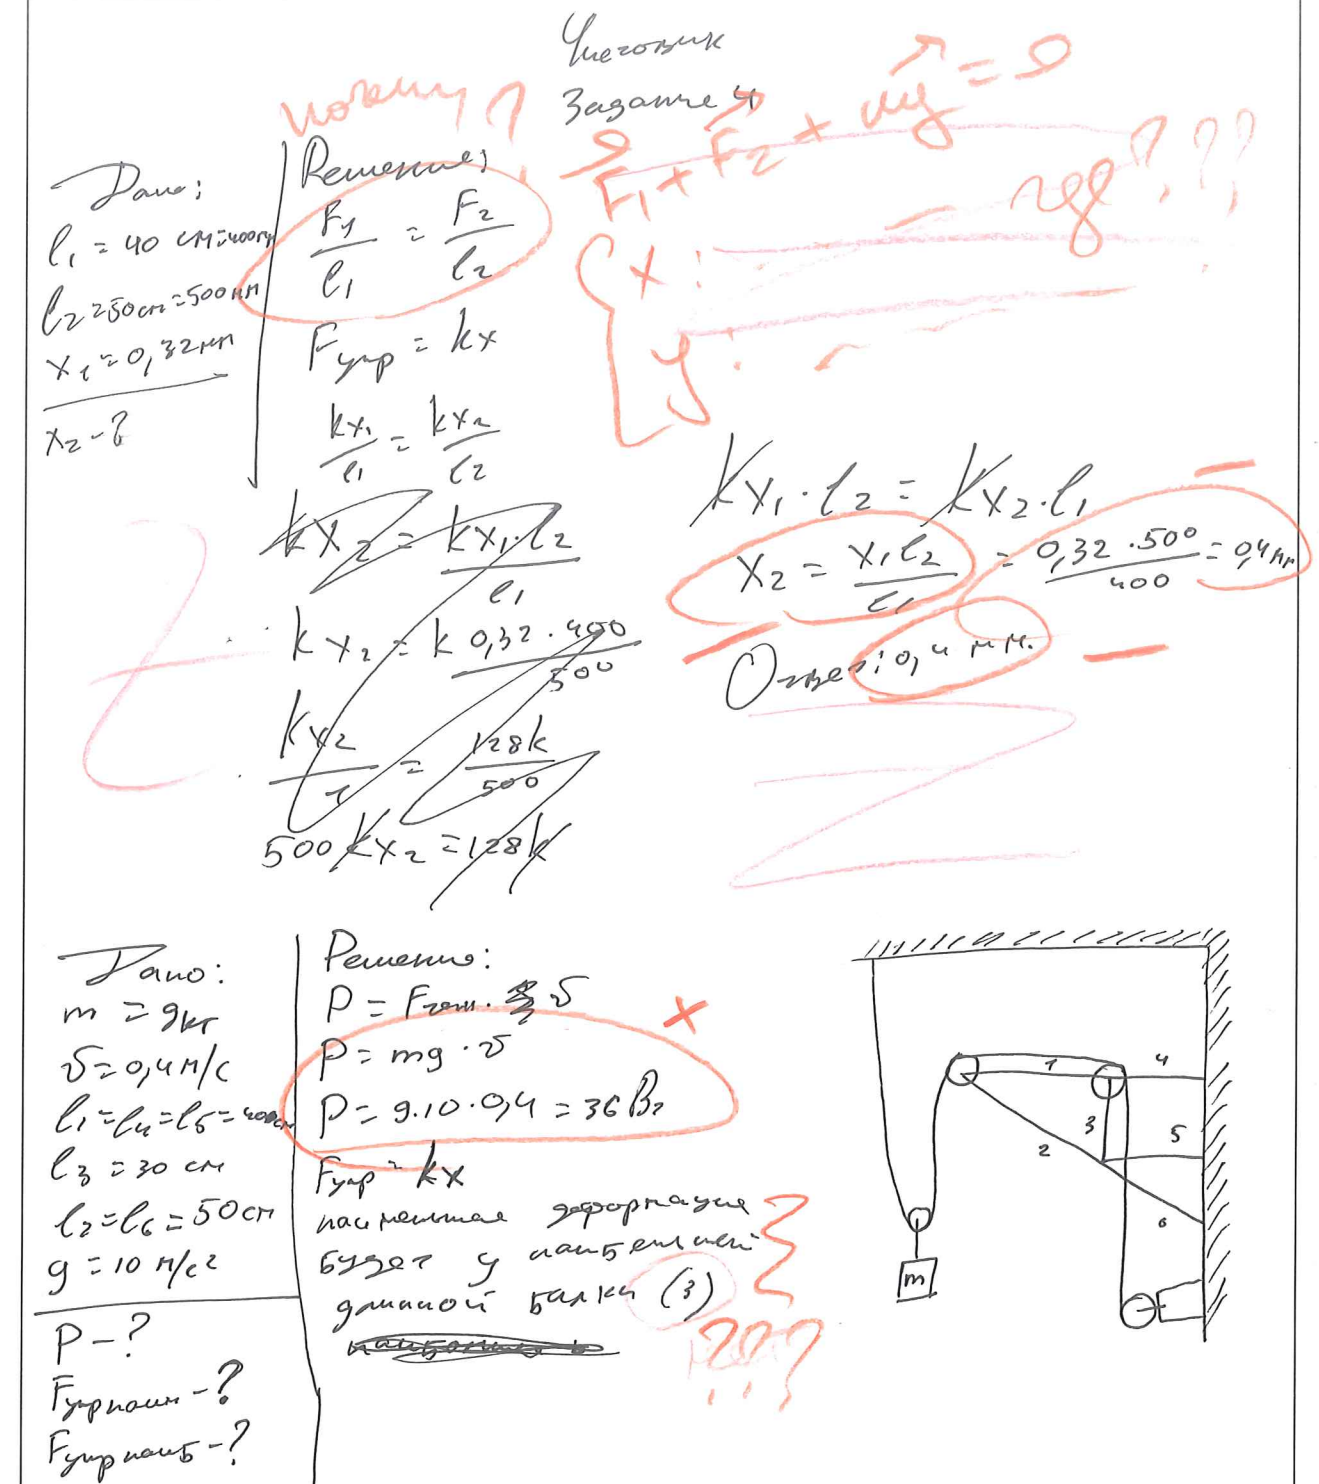 Чистовик
Задание 4
почему?
F₁ + F₂ + mg = 0
где???
x:
y:
Дано:
l₁ = 40 см = 400мм
l₂ = 50см = 500мм
x₁ = 0,32мм
x₂ - ?
Решение:
F₁/l₁ = F₂/l₂
Fупр = kx
kx₁/l₁ = kx₂/l₂
kx₂ = kx₁·l₂/l₁
kx₂ = k 0,32·400/500
kx₂/1 = 128k/500
500kx₂ = 128k
kx₁·l₂ = kx₂·l₁
x₂ = x₁l₂/l₁ = 0,32·500/400 = 0,4мм
Ответ: 0,4 мм.
Дано:
m = 9кг
υ = 0,4м/с
l₁ = l₄ = l₅ = 400см
l₃ = 30 см
l₂ = l₆ = 50см
g = 10 м/с²
P - ?
Fупрнаим - ?
Fупрнаиб - ?
Решение:
P = Fтяж · υ
P = mg · υ
P = 9·10·0,4 = 36 Вт
Fупр = kx
наименьшая деформация
будет у наименьшей
длинной балки (3)
???
1
4
3
5
2
6
m